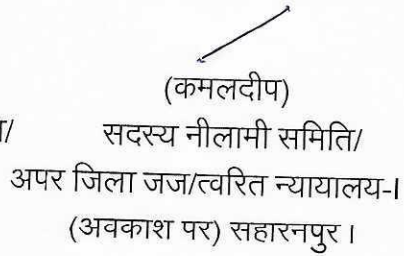 (कमलदीप)
सदस्य नीलामी समिति/
अपर जिला जज/त्वरित न्यायालय-I
(अवकाश पर) सहारनपुर ।